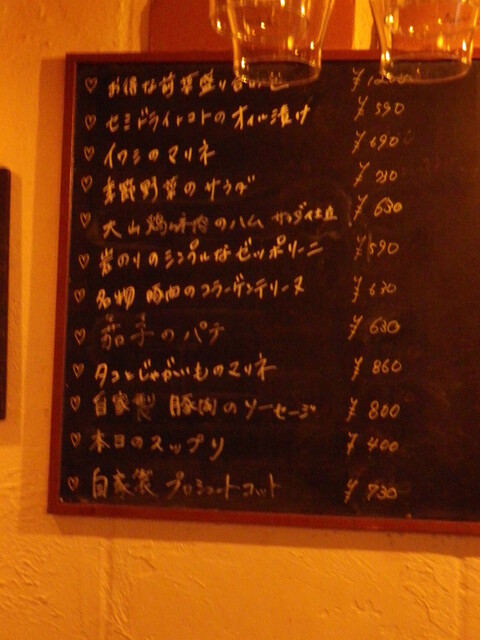 ♡ お得な前菜盛り合わせ
♡ セミドライトマトのオイル漬け ¥590
♡ イワシのマリネ ¥690
♡ 野菜のサラダ
♡ 大山鶏のハム サラダ仕立 ¥630
♡ 岩のりのシンプルなゼッポリーニ ¥590
♡ 名物 豚肉のコラーゲンテリーヌ ¥630
♡ 茄子のパテ ¥630
♡ タコとじゃがいものマリネ ¥860
♡ 自家製 豚肉のソーセージ ¥800
♡ 本日のスップリ ¥400
♡ 自家製 プロシュートコット ¥930